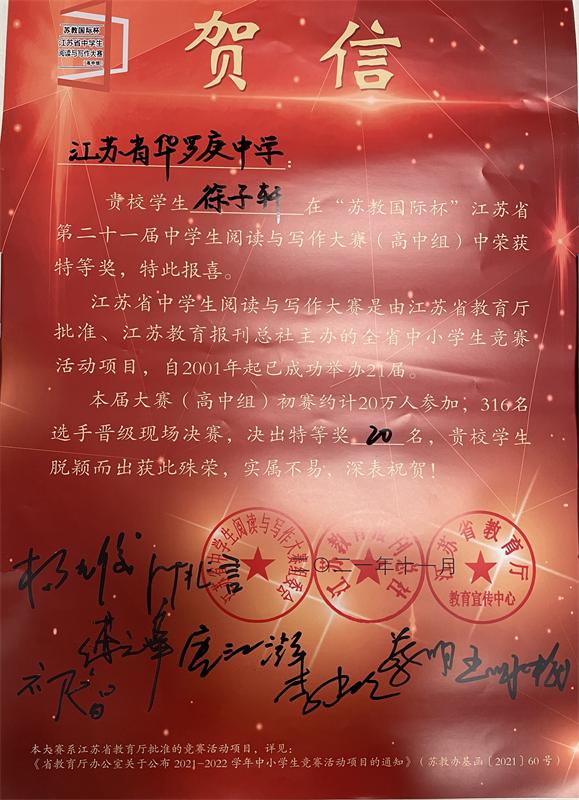 苏教国际杯
江苏省中学生
阅读与写作大赛
(高中组)
贺信
江苏省华罗庚中学：
贵校学生徐子轩在“苏教国际杯”江苏省
第二十一届中学生阅读与写作大赛（高中组）中荣获
特等奖，特此报喜。
江苏省中学生阅读与写作大赛是由江苏省教育厅
批准、江苏教育报刊总社主办的全省中小学生竞赛
活动项目，自2001年起已成功举办21届。
本届大赛（高中组）初赛约计20万人参加，316名
选手晋级现场决赛，决出特等奖20名，贵校学生
脱颖而出获此殊荣，实属不易，深表祝贺！
江苏省中学生阅读与写作大赛组委会
江苏教育报刊总社
江苏省教育厅
教育宣传中心
二〇二一年十一月
本大赛系江苏省教育厅批准的竞赛活动项目，详见：
《省教育厅办公室关于公布 2021-2022 学年中小学生竞赛活动项目的通知》（苏教办基函〔2021〕60 号）